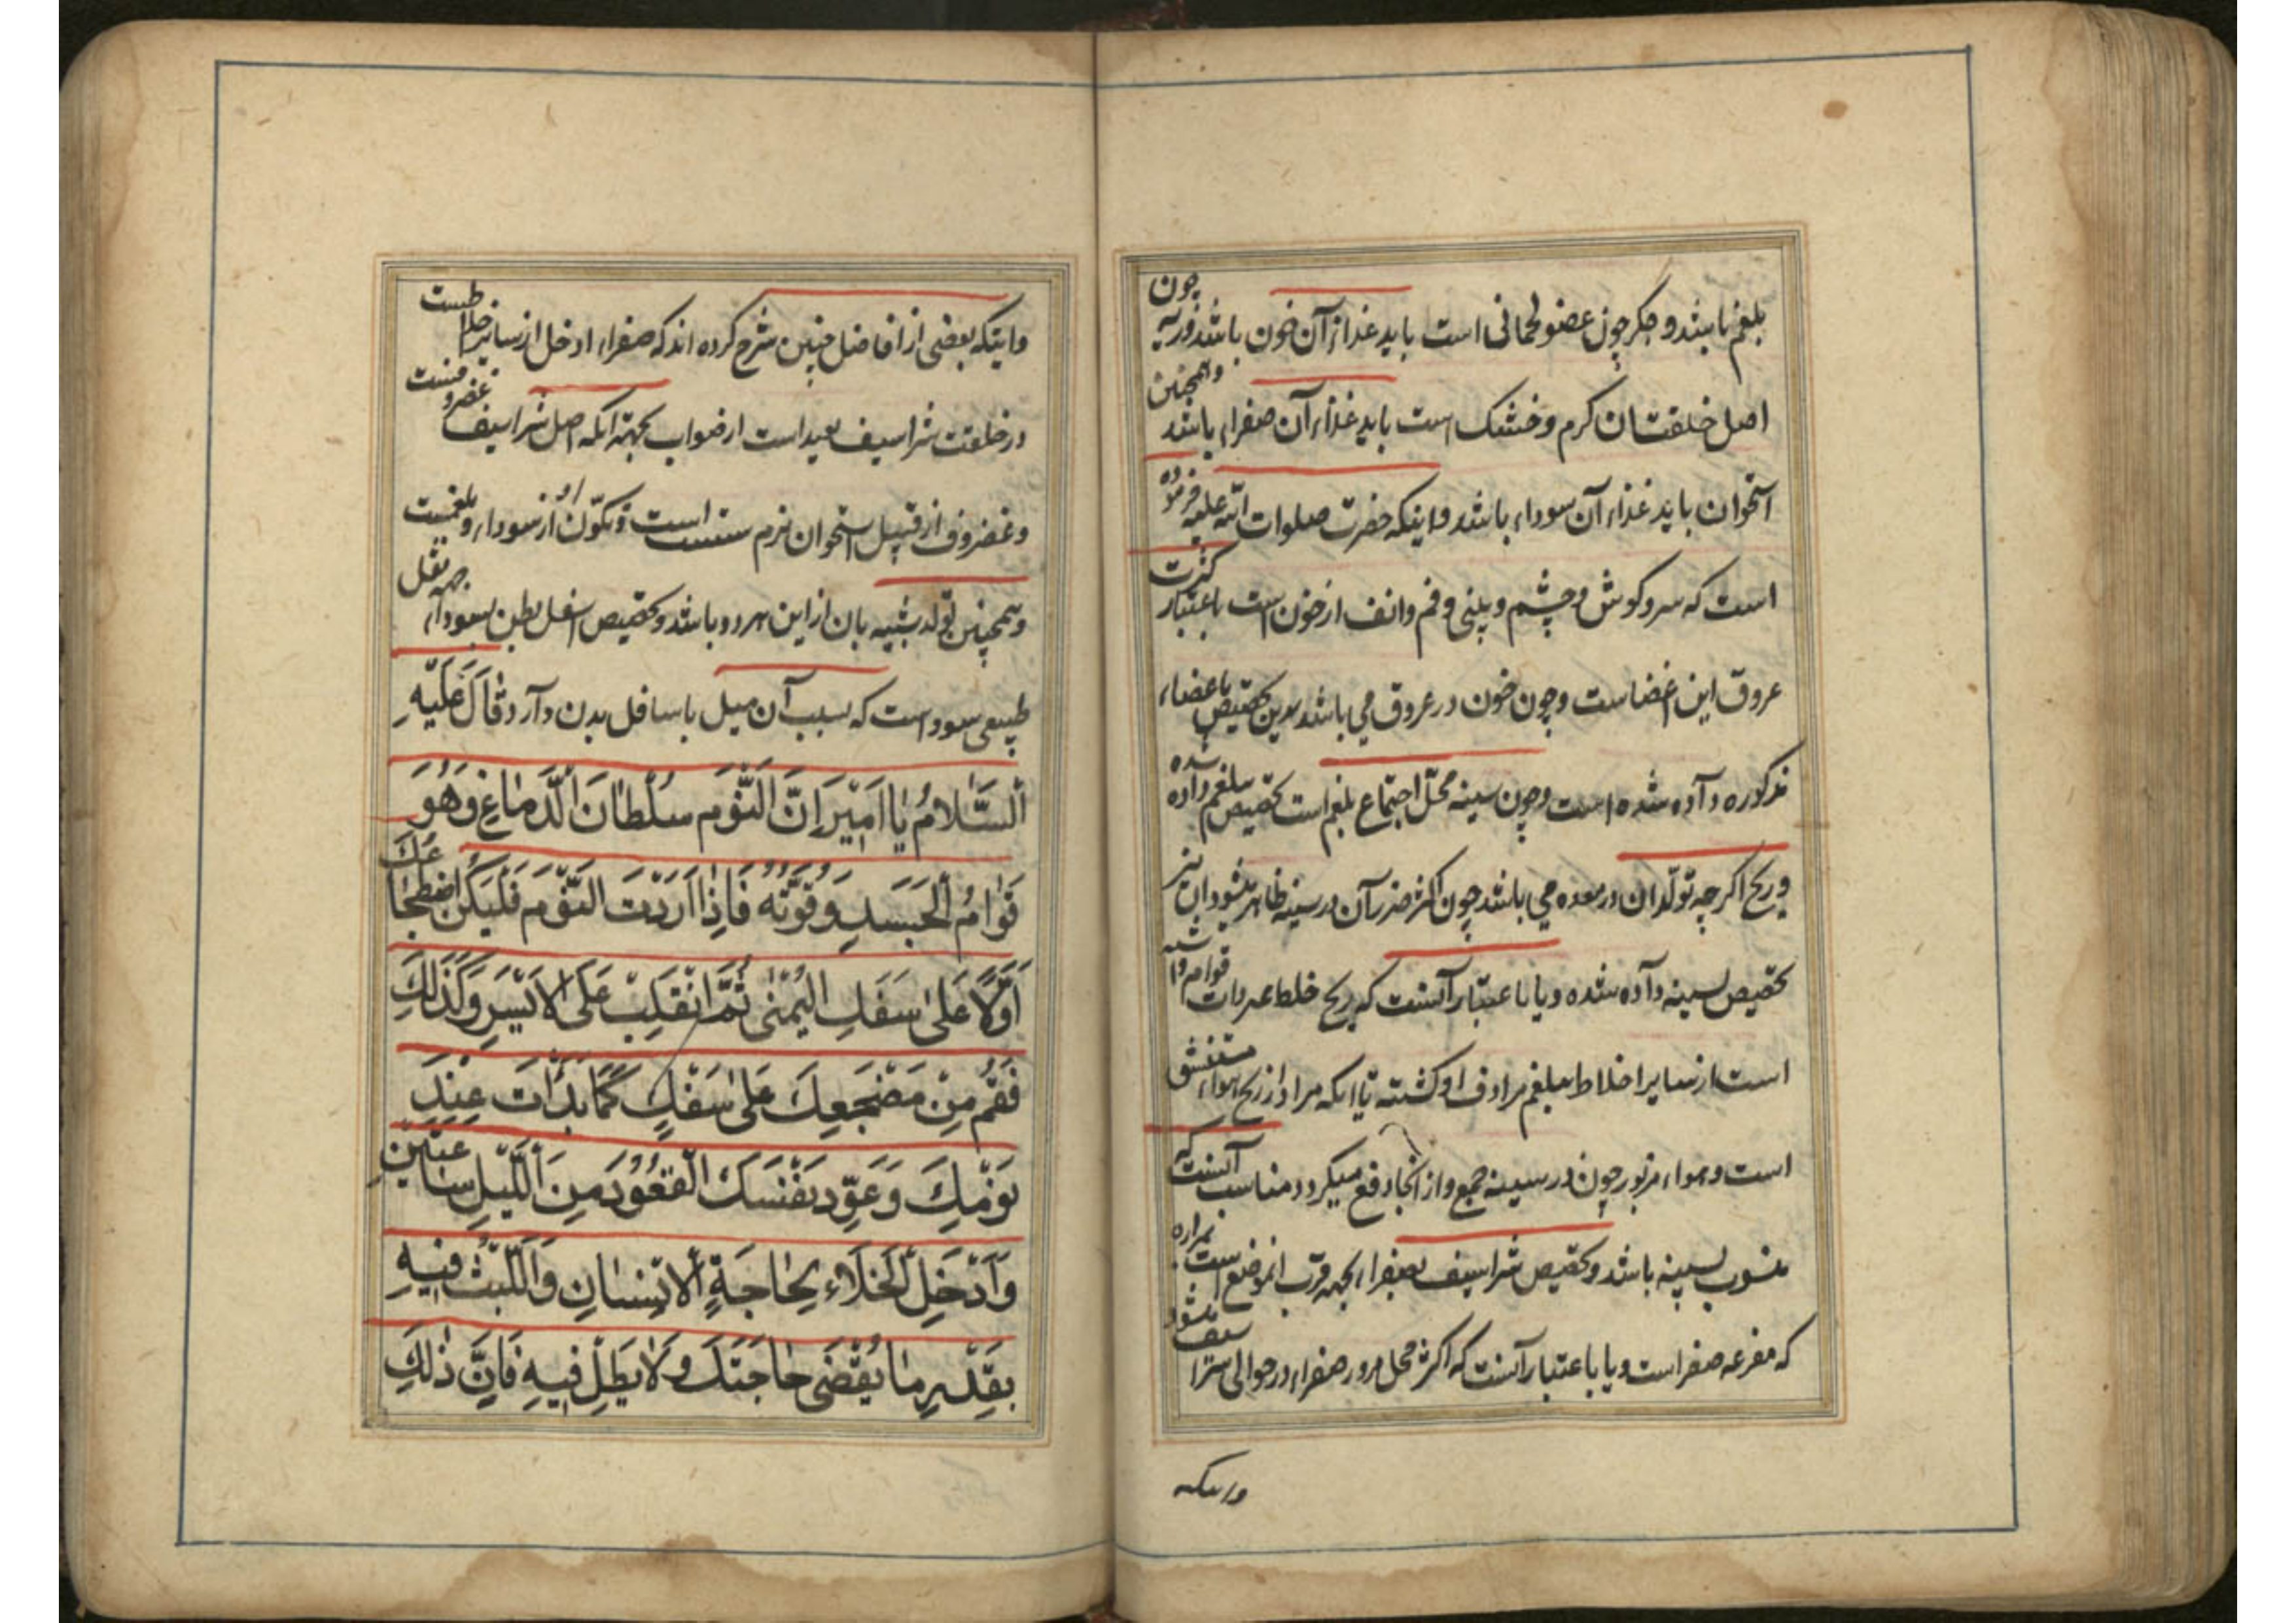 بلغم باشد و جگر چون عضو لحمانی است باید غذاء آن خون باشد و ریه چون
اصل خلقتشان گرم و خشک است باید غذاء آن صفراء باشد و همچنین
استخوان باید غذاء آن سوداء باشد و اینکه حضرت صلوات الله علیه فرموده
است که سر و گوش و چشم و بینی و فم و انف از خون است باعتبار کثرت
عروق این اعضا است و چون خون در عروق می باشد بدین تخصیص باعضاء
مذکوره داده شده است و چون سینه محل اجتماع بلغم است تخصیص ببلغم داده شده
و ریح اگرچه تولد ان در معده می باشد چون اکثر ضرر آن در سینه ظاهر میشود ان نیز
تخصیص بسینه داده شده و یا باعتبار آنست که ریح خلط
است از سایر اخلاط ببلغم مرادف او گشته یا آنکه مراد از ریح هواء مستنشق
است و هواء مزبور چون در سینه جمع و از آنجا دفع میگردد مناسب آنست که
منسوب بسینه باشد و تخصیص شراسیف بصفراء بجهة قرب انموضع است بمراره
که مفرغه صفرا است و یا باعتبار آنست که اکثر محل مرور صفراء در حوالی شراسیف میشود
و اینکه
و اینکه بعضی از افاضل چنین شرح کرده اند که صفراء ادخل از سایر اخلاطست
در خلقت شراسیف بعید است از صواب بجهة آنکه اصل شراسیف غضروفست
و غضروف از قبیل استخوان نرم سست است و تکون او از سوداء و بلغمست
و همچنین تولد شبیه بان از این هر دو باشد و تخصیص اسفل بطن بسوداء بجهة ثقل
طبیعی سودا است که بسبب آن میل باسافل بدن دارد قَالَ عَلَیْهِ
اَلسَّلامُ یٰا اَمِیْرَ اِنَّ النَّوْمَ سُلْطانَ الدِّمٰاغِ وَهُوَ
قَوٰامُ الْجَسَدِ وَقُوَّتُهُ فَاِذٰا اَرَدْتَ النَّوْمَ فَلْیَکُنِ اضْطِجٰاعُکَ
اَوَّلًا عَلیٰ شَقِّکَ الیُمْنیٰ ثُمَّ انْقَلِبْ عَلَی الاَیْسَرِ وَکَذٰلِکَ
فَقُمْ مِنْ مَضْجَعِکَ عَلیٰ شَقِّکَ کَمٰا بَدَاْتَ عِنْدَ
نَوْمِکَ وَعَوِّدْ نَفْسَکَ الْقُعُوْدَ مِنَ اللَّیْلِ سٰاعَتَیْنِ
وَادْخُلِ الْخَلَاءَ لِحٰاجَةِ الْاِنْسٰانِ وَاللَّبْثُ فِیْهِ
بِقَدْرِ مٰا یُقْضیٰ حٰاجَتَکَ وَلٰا یُطِلْ فِیْهِ فَاِنَّ ذٰلِکَ